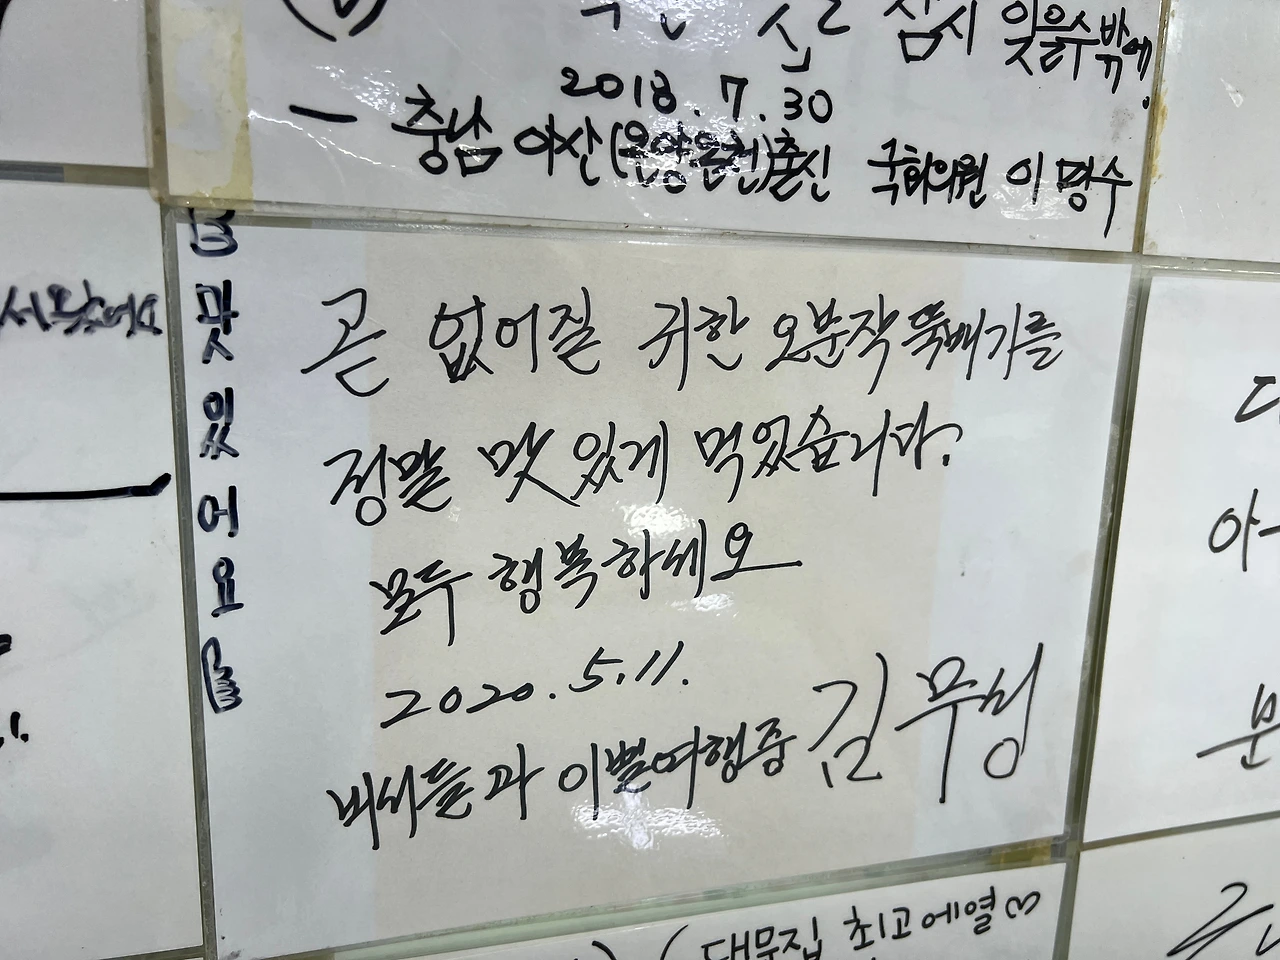 잠시 잊을수밖에.
2018. 7. 30
- 충남 아산(온양온천)출신 국회의원 이명수
서 왔어요
맛있어요
곧 없어질 귀한 오분작뚝배기를
정말 맛있게 먹었습니다.
모두 행복하세요
2020. 5. 11.
비서들과 이별여행중 김무성
대
아
분
(대우집 최고에열♡